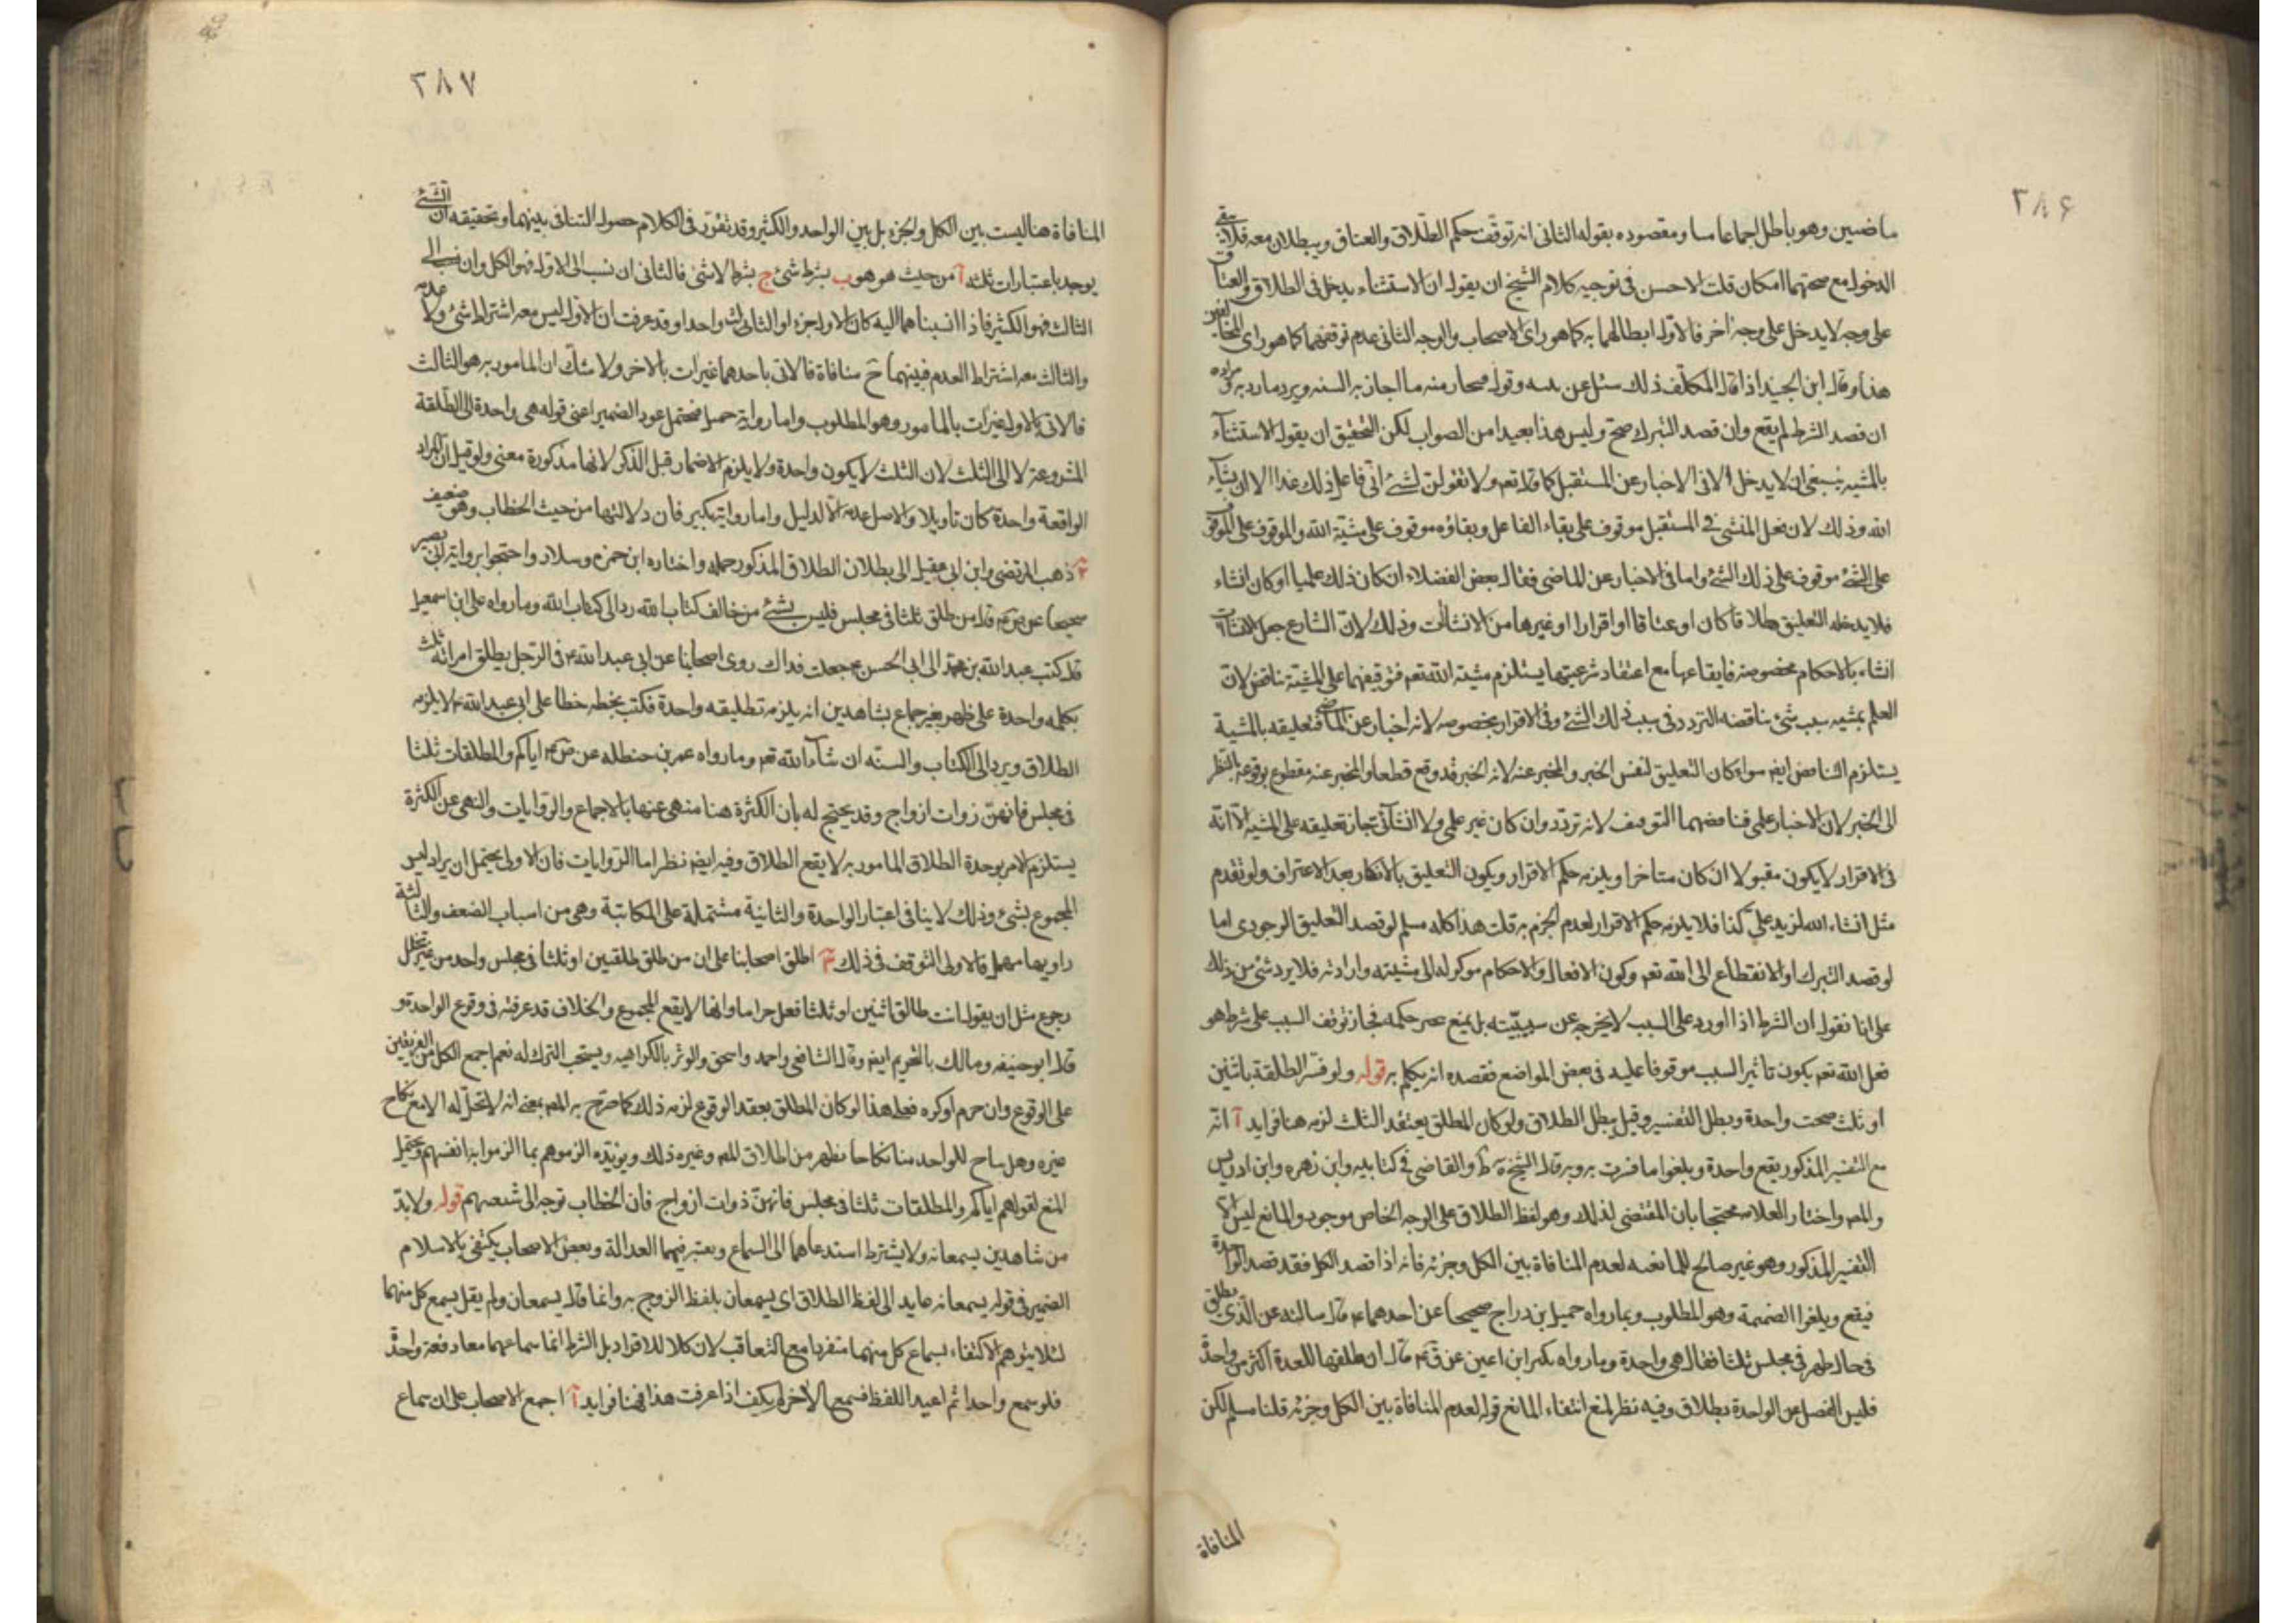 ٣٨۶
ماضيين وهو باطل اجماعا منا ومقصوده بقوله الثانى انه توقف حكم الطلاق والعتاق ويبطلان معه فلا يبقى
الدخول مع صحتهما امكان قلت الاحسن فى توجيه كلام الشيخ ان يقول ان الاستثناء يدخل فى الطلاق والعتاق
على وجه لا يدخل على وجه آخر فالاول ابطالهما به كما هو راى الاصحاب والوجه الثانى عدم توقفهما كما هو راى المخالفين
هذا وقال ابن الجنيد اذا قال المكلف ذلك سئل عن وقوله منه ما اجازته السنه ويرد ما رد به مراده
ان قصد الشرط لم يقع وان قصد التبرك صح وليس هذا بعيدا من الصواب لكن التحقيق ان يقول الاستثناء
بالمشيه ينبغى ان لا يدخل الا فى الاخبار عن المستقبل كما قال تعم ولا تقولن لشئ انى فاعل ذلك غدا الا ان يشاء
الله وذلك لان فعل المنشى فى المستقبل موقوف على بقاء الفاعل وبقاؤه موقوف على مشيّة الله والموقوف على الموقوف
على الشئ موقوف على ذلك الشئ واما فى الاخبار عن الماضى فقال بعض الفضلاء ان كان ذلك علميا او كان انشاء
فلا يدخله التعليق طلاقا كان او عتاقا او اقرارا او غيرها من الانشاآت وذلك لان الشارع جعل
انشاء بالاحكام مخصوصة فايقاعها مع اعتقاد شرعيتها يستلزم مشية الله تعم فتوقيفها على المشية تناقض لان
العلم بمشيه سبب شئ يناقضه التردد فى سبب ذلك الشئ وفى الاقرار بخصوصه لانه اخبار عن الماضى فتعليقه بالمشية
يستلزم التناقض ايضم سواء كان التعليق لنفس الخبر والمخبر عنه لانه الخبر قد وقع قطعا والمخبر عنه مقطوع بوقوعه بالنظر
الى الخبر لان الاخبار علمى فناقضهما التوقيف لانه تردد وان كان غير علمى ولا انشائى جاز تعليقه على المشية الا انه
فى الاقرار لا يكون مقبولا ان كان متاخرا ويلزمه حكم الاقرار ويكون التعليق بالانكار بعد الاعتراف ولو تقدم
مثل انشاء الله لزيد علىّ كذا فلا يلزمه حكم الاقرار لعدم الجزم به قلت هذا كله مسلم لو قصد التعليق الوجودى اما
لو قصد التبرك او الانقطاع الى الله تعم وكون الافعال والاحكام موكوله الى مشيته وارادته فلا يرد شئ من ذلك
على انا نقول ان الشرط اذا اورد على السبب لا يخرجه عن سببيّته بل يمنع حكمه فجاز توقف السبب على شرط هو
فعل الله تعم يكون تاثير السبب موقوفا عليه فى بعض المواضع فقصده ان يكلم به قوله ولو فسّر الطلقة باثنين
او ثلث صحت واحدة وبطل التفسير وقيل يبطل الطلاق ولو كان المطلق يعتقد الثلث لزمه هنا فوايد آ انه
مع التفسير المذكور يقع واحدة ويلغوا ما فسرت به وبه قال الشيخ ية ط والقاضى فى كتابيه وابن زهره وابن ادريس
والمصم واختار العلامه محتجا بان المقتضى لذلك وهو لفظ الطلاق على الوجه الخاص موجود والمانع ليس الا
التفسير المذكور وهو غير صالح للمانعيه لعدم المنافاة بين الكل وجزئه فانه اذا قصد الكل فقد قصد الواحدة
فيقع ويلغوا الضميمة وهو المطلوب وبما رواه جميل بن دراج صحيحا عن احدهما ع قال سالته عن الذى يطلق
فى حال طهر فى مجلس ثلثا فقال هى واحدة وما رواه بكير ابن اعين عن ق ع قال ان طلقها للعدة اكثر من واحدة
فليس الفضل عن الواحدة بطلاق وفيه نظر لمنع انتفاء المانع قوله لعدم المنافاة بين الكل وجزئه قلنا مسلم لكن
المنافاة
٢٨٧
المنافاة هنا ليست بين الكل والجزء بل بين الواحد والكثير وقد تقرر فى الكلام حصول التنافى بينهما وتحقيقه ان الشئ
يوجد باعتبارات ثلثه آ من حيث هو هو ب بشرط شئ ج بشرط لا شئ فالثانى ان نسب الى الاول فهو الكل وان نسب الى
الثالث فهو الكثير فاذا انسبناهما اليه كان الاول جزء او الثانى ث واحدا وقد عرفت ان الاول ليس معه اشتراط شئ ولا عدمه
والثالث معه اشتراط العدم فبينهما ح منافاة فالاتى باحدهما غير ات بالاخر ولا شك ان المامور به هو الثالث
فالاتى بالاول غير ات بالمامور وهو المطلوب واما رواية جميل فيحتمل عود الضمير اعنى قوله هى واحدة الى الطلقة
المشروعة لا الى الثلث لان الثلث لا يكون واحدة ولا يلزم الاضمار قبل الذكر لانها مذكورة معنى ولو قيل ان المراد
الواقعة واحدة كان تاويلا والاصل عدمه الا لدليل واما رواية بكير فان دلالتها من حيث الخطاب وهو ضعيف
٢ ذهب المرتضى وابن ابى عقيل الى بطلان الطلاق المذكور جمله واختاره ابن حمزه وسلار واحتجوا برواية ابى بصير
صحيحا عن ص ع قال من طلق ثلثا فى مجلس فليس بشئ من خالف كتاب الله رد الى كتاب الله وما رواه على ابن اسمعيل
قال كتب عبد الله بن محمد الى ابى الحسن ع جعلت فداك روى اصحابنا عن ابى عبد الله ع فى الرجل يطلق امراته ثلث
بكلمه واحدة على طهر بغير جماع بشاهدين انه يلزمه تطليقه واحدة فكتب بخطه خطا على ابى عبد الله ع لا يلزمه
الطلاق ويرد الى الكتاب والسنّه ان شاء الله تعم وما رواه عمر بن حنظله عن ص ع اياكم والمطلقات ثلثا
فى مجلس فانهنّ زوات ازواج وقد يحتج له بأن الكثرة هنا منهى عنها بالاجماع والروايات والنهى عن الكثرة
يستلزم الامر بوحدة الطلاق المامور به لا يقع الطلاق وفيه ايضم نظر اما الروايات فان الاولى يحتمل ان يراد ليس
المجموع بشئ وذلك لا ينافى اعتبار الواحدة والثانية مشتملة على المكاتبة وهى من اسباب الضعف والثالثة
راويها مهمل فالاولى التوقف فى ذلك ٣ اطلق اصحابنا على ان من طلق طلقتين او ثلثا فى مجلس واحد من غير تخلل
رجوع مثل ان يقول انت طالق اثنين او ثلثا فعل حراما وانها لا يقع المجموع والخلاف قد عرفته فى وقوع الواحدة و
قال ابو حنيفه ومالك بالتحريم ايضم وقال الشافعى واحمد واسحق والوثر بالكراهيه ويستحب الترك له نعم اجمع الكل من الفريقين
على الوقوع وان حرم او كره فعلى هذا لو كان المطلق يعتقد الوقوع لزمه ذلك كما صرّح به المصم بمعنى انه لا تحل له الا مع نكاح
غيره وهل يباح للواحد منا نكاحها يظهر من اطلاق المصم وغيره ذلك ويؤيّده الزموهم بما الزموا به انفسهم ويحتمل
المنع لقولهم اياكم والمطلقات ثلثا فى مجلس فانهنّ ذوات ازواج فان الخطاب توجه الى شيعتهم قوله ولا بدّ
من شاهدين يسمعانه ولا يشترط استدعاهما الى السماع ويعتبر فيهما العدالة وبعض الاصحاب يكتفى بالاسلام
الضمير فى قوله يسمعانه عايد الى لفظ الطلاق اى يسمعان بلفظ الزوج به وانما قال يسمعان ولم يقل يسمع كل منهما
لئلا يتوهم الاكتفاء بسماع كل منهما متفردا مع التعاقب لان كلا للافراد بل الشرط انما سماعهما معا دفعة واحدة
فلو سمع واحد ثم اعيد اللفظ فسمع الاخر لم يكف اذا عرفت هذا فهنا فوايد آ اجمع الاصحاب على ان سماع